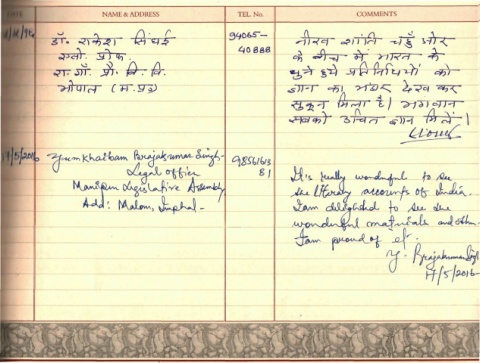 DATE NAME & ADDRESS TEL No. COMMENTS
डॉ. राकेश सिंघई
एसो. प्रोफ.
रा. गाँ. प्रौ. वि. वि.
भोपाल (म.प्र)
94065-
40888
नीरव शांति चहुँ ओर
के बीच में भारत के
चुने हुये प्रतिनिधियों को
ज्ञान का भंडार देख कर
सुकून मिला है। भगवान
सबको उचित ज्ञान मिले।
17/5/2016
Yumkhaibam Brajakumar Singh-
Legal Officer
Manipur Legislative Assembly
Add: Malom, Imphal-
98561613
81
It is really wonderful to see
the literary accounts of India.
I am delighted to see the
wonderful materials and other.
I am proud of it.
Y. Brajakumar Singh
17/5/2016-